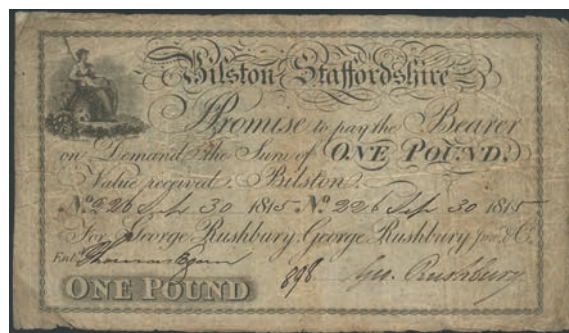 Bilston Staffordshire
Promise to pay the Bearer
on Demand the Sum of ONE POUND.
Value received. Bilston.
No. 226 Sep 30 1815 No. 226 Sep 30 1815
For George Rushbury, George Rushbury junr. & Co.
Entd. Thomas
ONE POUND 898 Geo. Rushbury